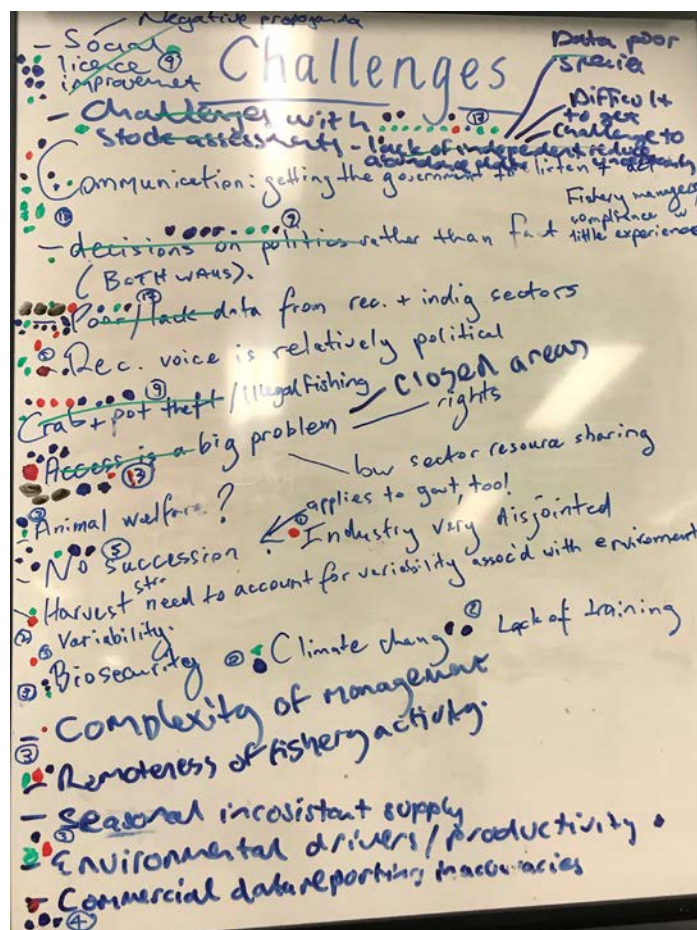 Negative propoganda
- Social
licence 9
improvement
Challenges
Data poor
specia
- Challenges with 17
stock assessments - lack of independent
abundance data
Difficult
to get
Challenge to
reduce
uncertainty
Communication: getting the government to listen + act
18
Fishery managers
compliance w
little experience
9
- decisions on politics rather than fact
(BOTH WAYS).
17
- Poor/lack data from rec. + indig sectors
Rec. voice is relatively political
9
Crab + pot theft / Illegal fishing
closed areas
- Access is a big problem
rights
13
low sector resource sharing
Animal welfare?
applies to govt, too!
5
- No succession
Industry very disjointed
- Harvest str. need to account for variability assoc'd with enviroment
variability.
- Biosecurity
Climate chang
2
Lack of training
- Complexity of management
3
- Remoteness of fishery activity.
- Seasonal incosistant supply
- Environmental drivers/productivity
- Commercial data reporting inaccuracies
4